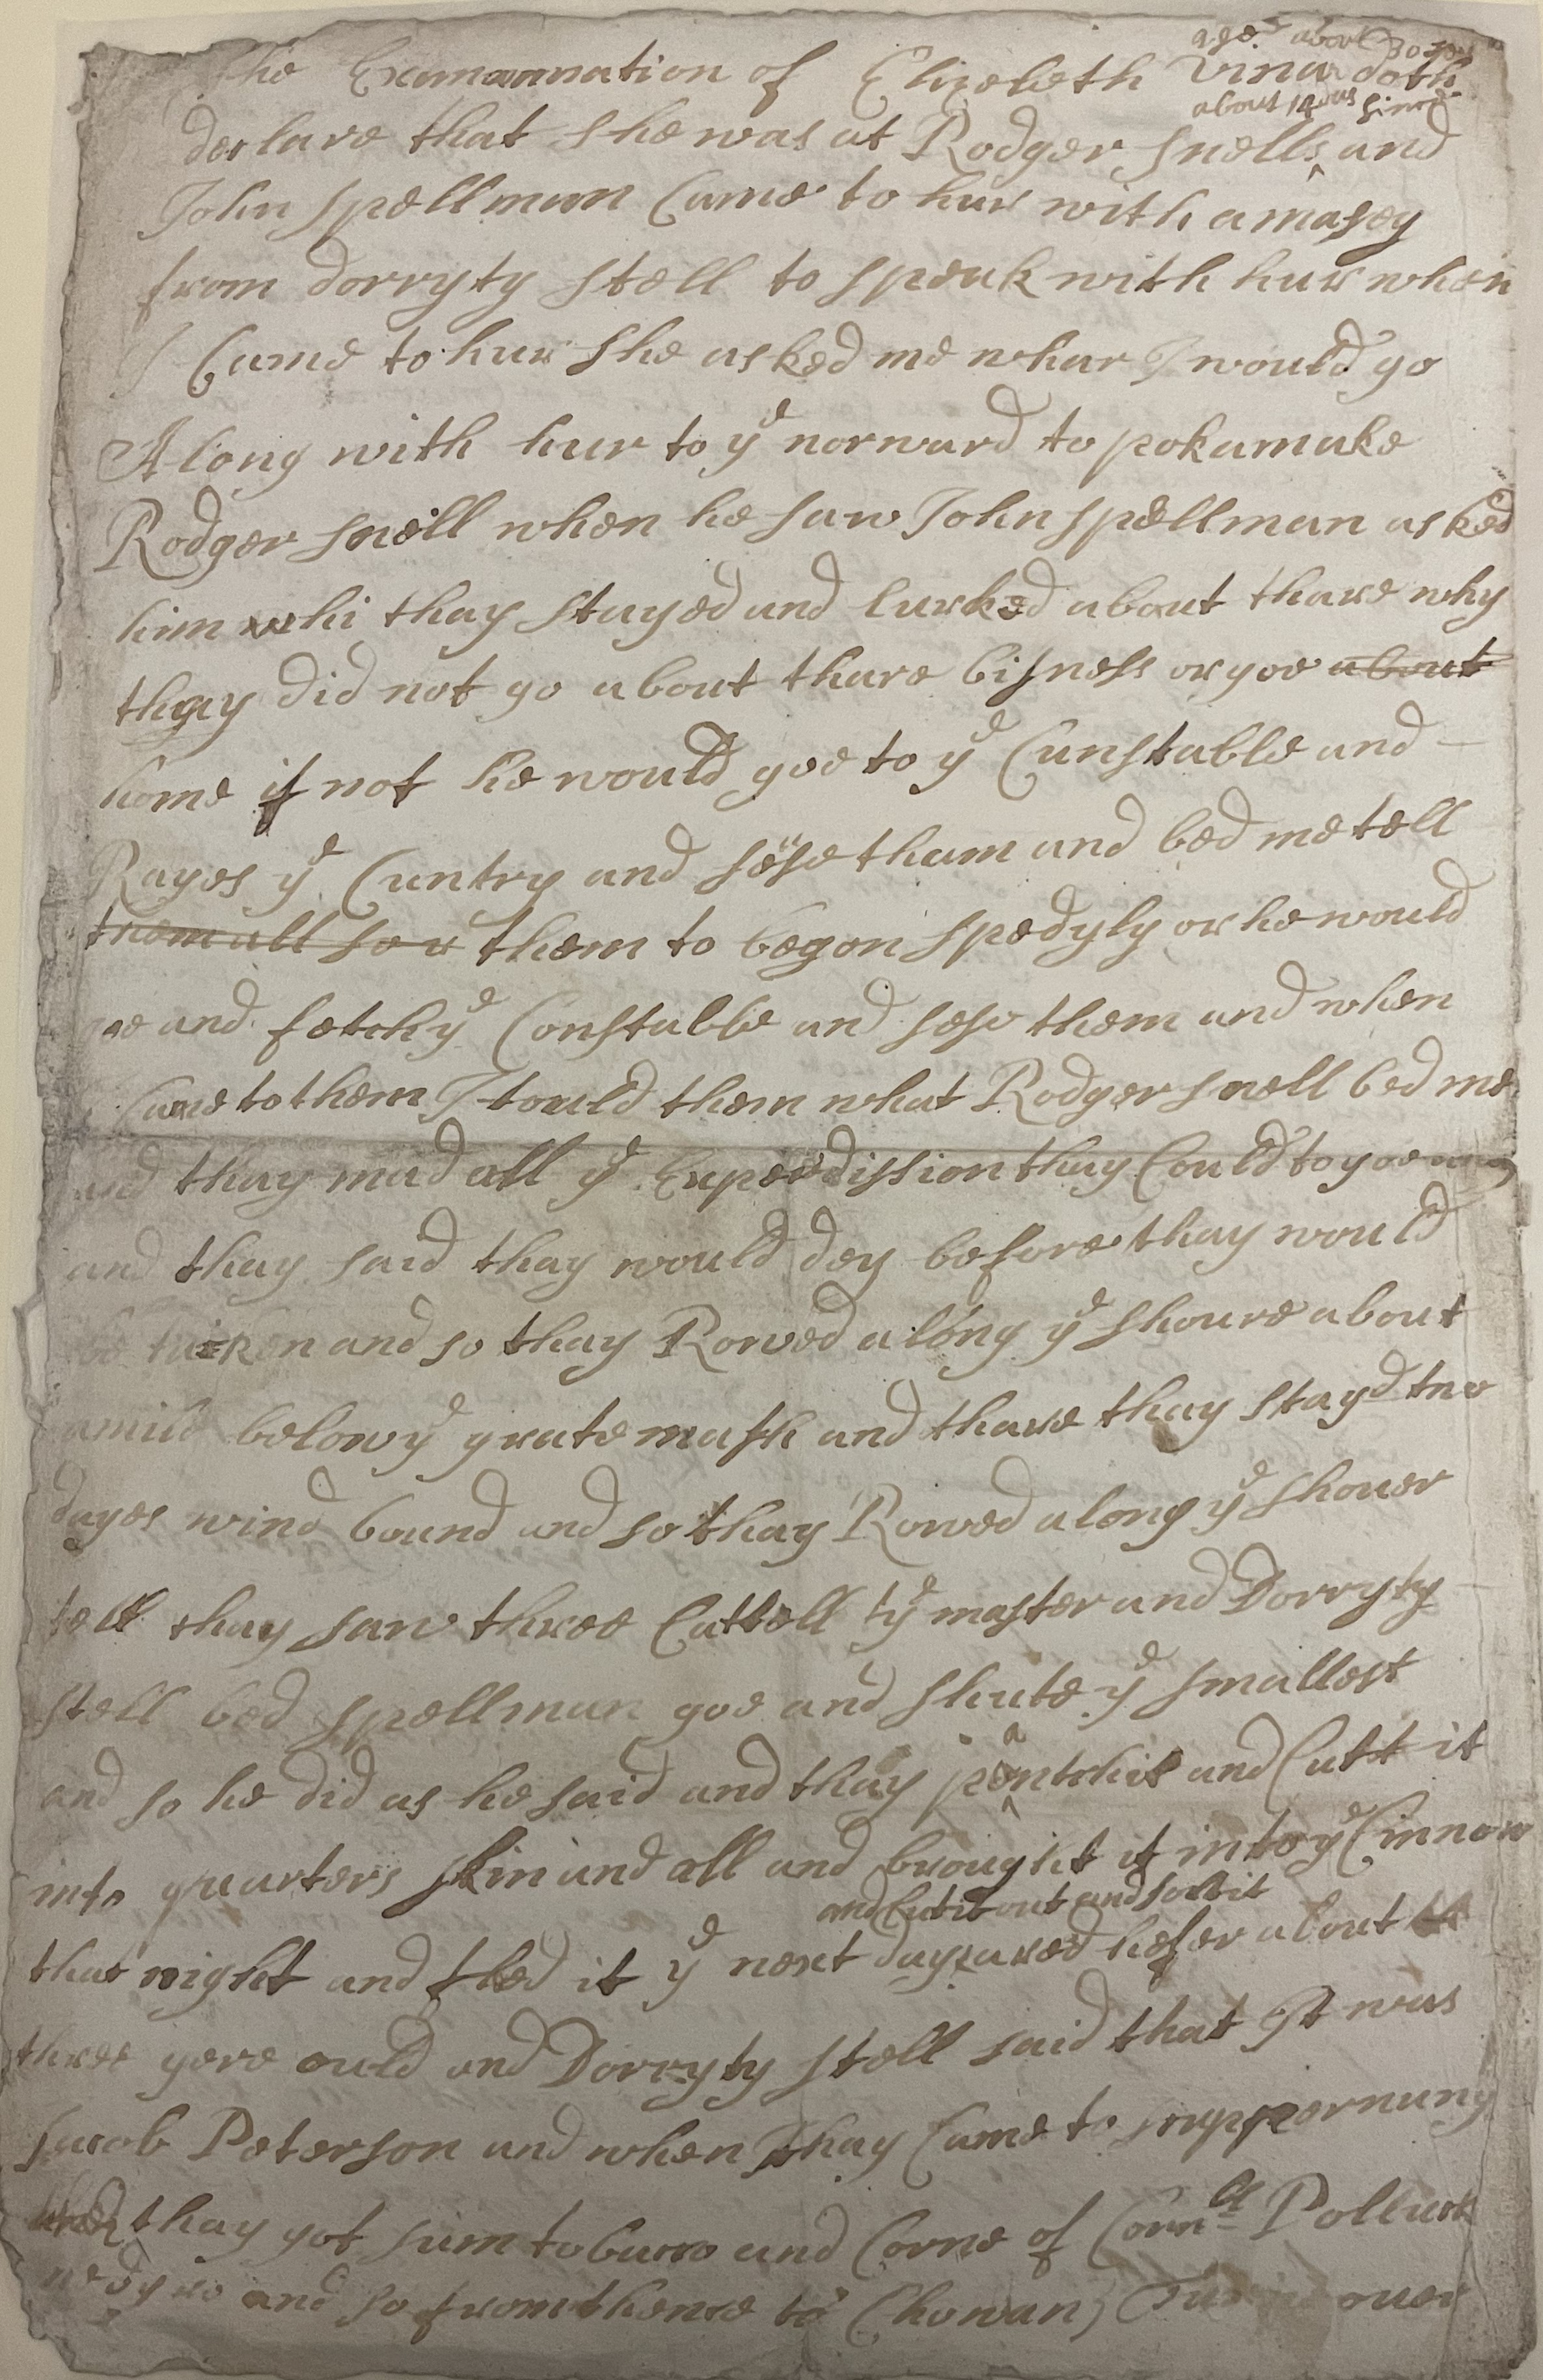 age.d about 30 yrs
The Examannation of Elizebeth Vinar doth
about 14 das sinc
declare that she was at Rodger Snells ^ and
John Spellman Came to hur with a masey
from dorryty Stell to speak with hur when
I Came to hur She asked me whar I would go
Along with hur to ye norward to pokamake
Rodger Snell when he saw John Spellman asked
him whi thay stayed and lurked about thare why
thay did not go about thare bisness or goe about
home if not he would goe to ye Cunstable and —
Rayes ye Cuntry and sese tham and bed me tell
them all for them to begon spedyly or he would
goe and fetch ye Constable and sese them and when
I Came to them I tould them what Rodger Snell bed me
and thay mad all ye Experdission thay Could to goe away
and thay said thay would dey before thay would
be taken and so thay Rowed along ye Shoure about
a mile belowy e grate mash and thare thay stayd two
dayes wind bound and so thay Rowed along ye Shouer
tell thay saw three Cattell ty e master and Dorryty
Stell bed Spellman goe and shute ye smallest
and so he did as he said and thay and Cutt it
into quarters skin and all and brought it into ye Cinnow
and Cut it out and solt it
that night and fled it ye next day a Red hefer about
three yere ould and Dorryty Stell said that It was
Jacob Peterson and when thay Came to
thay got sum tobacco and Corne of Corn.ll Pollick
negro and so from thence to Chowan) Turne over